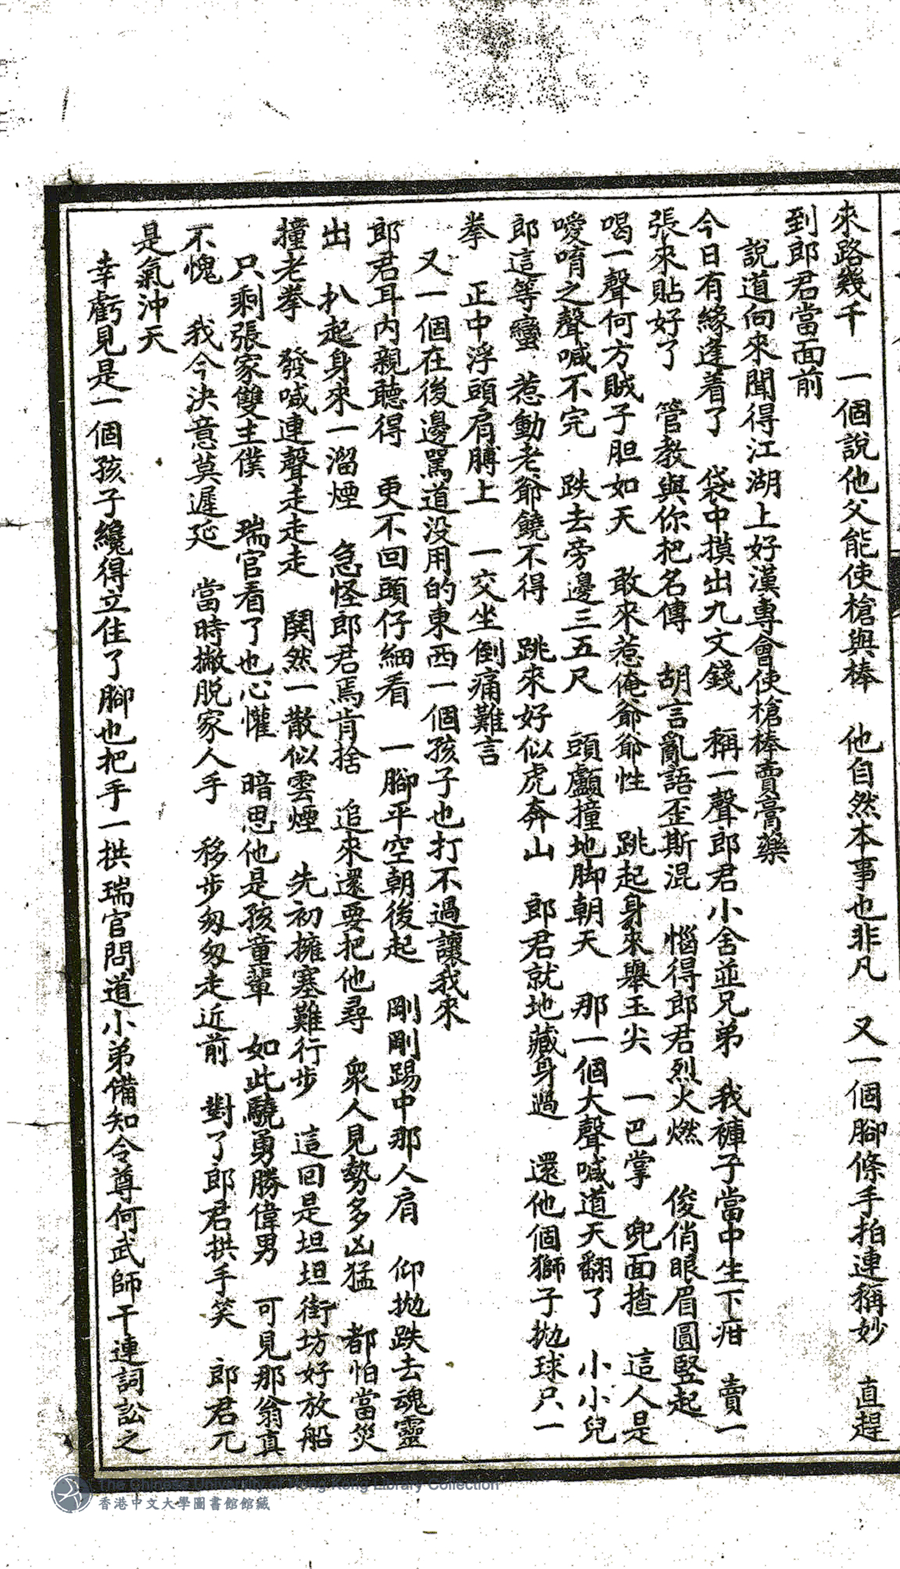 來路幾千　一個說他父能使槍與棒　他自然本事也非凡　又一個腳條手拍連稱妙　直趕
到郎君當面前
說道向來聞得江湖上好漢專會使槍棒賣膏藥
今日有緣逢着了　袋中摸出九文錢　稱一聲郎君小舍並兄弟　我褲子當中生下疳　賣一
張來貼好了　管教與你把名傳　胡言亂語歪斯混　惱得郎君烈火燃　俊俏眼眉圓竪起
喝一聲何方賊子胆如天　敢來惹俺爺爺性　跳起身來舉玉尖　一巴掌　兜面揸　這人是
噯唷之聲喊不完　跌去旁邊三五尺　頭顱撞地脚朝天　那一個大聲喊道天翻了　小小兒
郎這等蠻　惹動老爺饒不得　跳來好似虎奔山　郎君就地藏身過　還他個獅子拋球只一
拳　正中浮頭肩膊上　一交坐倒痛難言
又一個在後邊罵道没用的東西一個孩子也打不過讓我來
郎君耳內親聽得　更不回頭仔細看　一腳平空朝後起　剛剛踢中那人肩　仰拋跌去魂靈
出　扒起身來一溜煙　急怪郎君焉肯捨　追來還要把他尋　衆人見勢多凶猛　都怕當災
撞老拳　發喊連聲走走走　鬨然一散似雲煙　先初擁塞難行步　這回是坦坦街坊好放船
只剩張家雙主僕　瑞官看了也心懽　暗思他是孩童輩　如此驍勇勝偉男　可見那翁真
不愧　我今決意莫遲延　當時撇脱家人手　移步匆匆走近前　對了郎君拱手笑　郎君兀
是氣沖天
幸虧見是一個孩子纔得立住了腳也把手一拱瑞官問道小弟備知令尊何武師干連詞訟之
The Chinese University of Hong Kong Library Collection
香港中文大學圖書館館藏